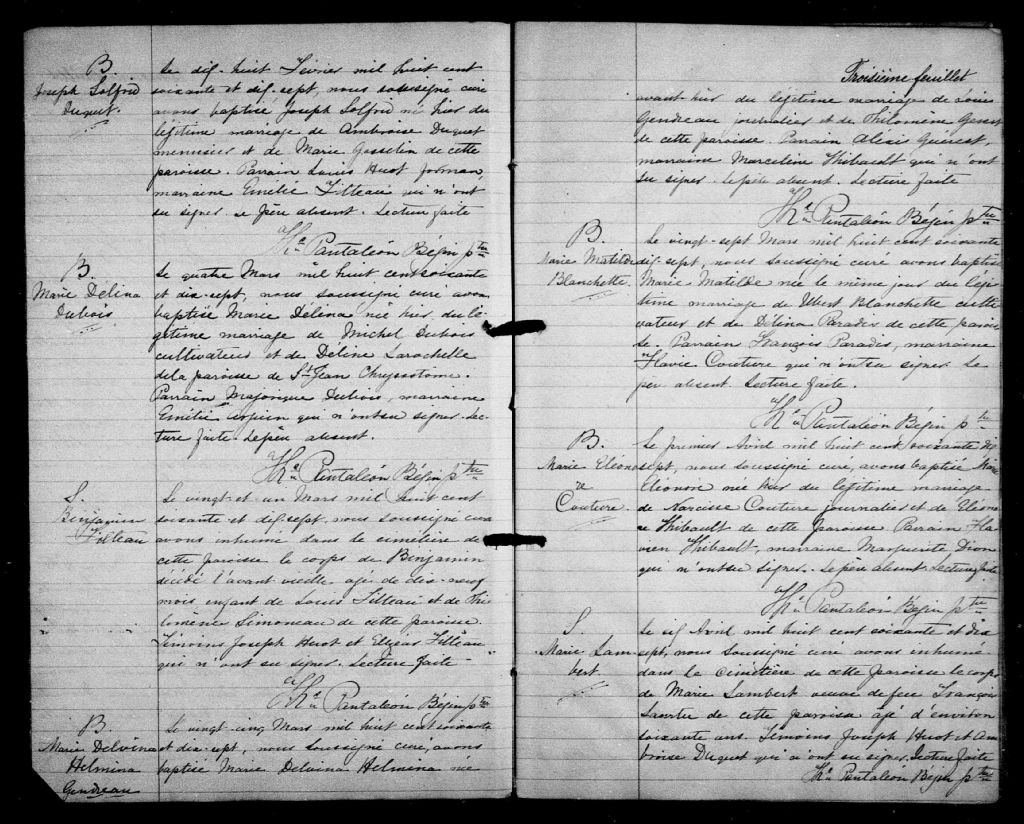 B.
Joseph Solfrid
Duquet.
Le dix-huit Février mil huit cent
soixante et dix-sept, nous soussigné curé
avons baptisé Joseph Solfrid né hier du
légitime mariage de Ambroise Duquet
menuisier et de Marie Gosselin de cette
paroisse. Parrain Louis Huot forman,
marraine Emélie Filteau qui n'ont
su signer. Le père absent. Lecture faite
Pantaléon Bégin ptre
B.
Marie Délina
Dubois
Le quatre Mars mil huit cent soixante
et dix-sept, nous soussigné curé avons
baptisé Marie Délina née hier du lé
gitime mariage de Michel Dubois
cultivateur et de Déline Larochelle
de la paroisse de St Jean Chrysostôme.
Parrain Majorique Dubois, marraine
Emélie qui n'ont su signer. Lec-
ture faite. Le père absent.
Pantaléon Bégin ptre
S.
Benjamin
Filteau
Le vingt et un Mars mil huit cent
soixante et dix-sept, nous soussigné curé
avons inhumé dans le cimetière de
cette paroisse le corps de Benjamin
décédé l'avant veille âgé de dix-neuf
mois, enfant de Louis Filteau et de Phi-
lomène Simoneau de cette paroisse.
Témoins Joseph Huot et Elzéar Filteau
qui n'ont su signer. Lecture faite
Pantaléon Bégin ptre
B.
Marie Delvina
Helmina
Gendreau
Le vingt-cinq Mars mil huit cent soixante
et dix-sept, nous soussigné curé, avons
baptisé Marie Delvina Helmina née
Troisième feuillet
avant-hier du légitime mariage de Louis
Gendreau journalier et de Philomène
de cette paroisse. Parrain Alexis Guérest,
marraine Marceline Thibault qui n'ont
su signer. Le père absent. Lecture faite
Pantaléon Bégin ptre
B.
Marie Matilde
Blanchette.
Le vingt-sept Mars mil huit cent soixante
dix-sept, nous soussigné curé avons baptisé
Marie-Matilde née le même jour du légi
time mariage de Blanchette culti
vateur et de Délina Paradis de cette parois
se. Parrain François Paradis, marraine
Flavie Couture qui n'ont su signer. Le
père absent. Lecture faite.
Pantaléon Bégin ptre
B.
Marie Eléono
re
Couture.
Le premier Avril mil huit cent soixante dix
sept, nous soussigné curé, avons baptisé Marie
Eléonore née hier du légitime mariage
de Narcisse Couture journalier et de Eléono
re Thibault de cette paroisse Parrain Fla
vien Thibault, marraine Marguerite Dion
qui n'ont su signer. Le père absent. Lecture faite
Pantaléon Bégin ptre
S.
Marie Lam-
bert.
Le six Avril mil huit cent soixante et dix
sept, nous soussigné curé avons inhumé
dans le cimetière de cette paroisse le corps
de Marie Lambert veuve de feu François
de cette paroisse âgé d'environ
soixante ans. Témoins Joseph Huot et Am
broise Duquet qui n'ont su signer. Lecture faite
Pantaléon Bégin ptre